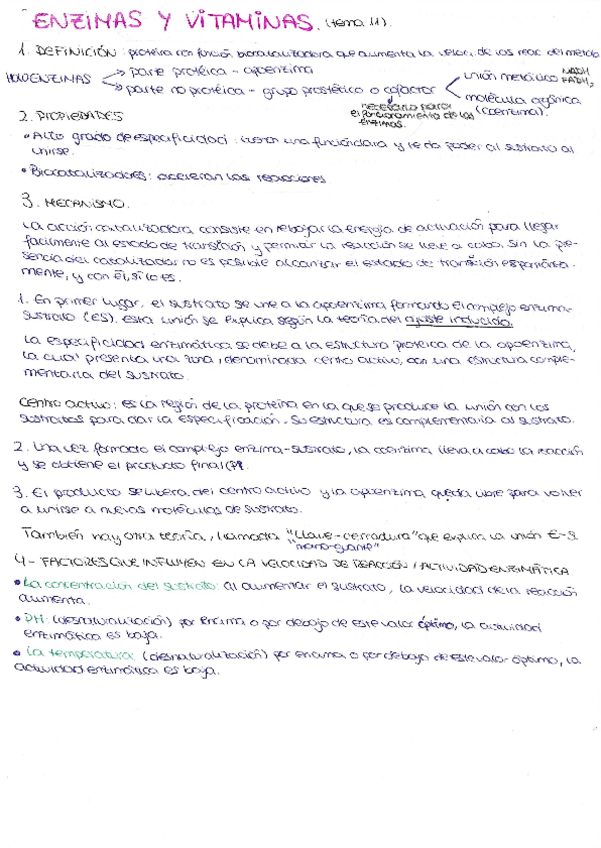 ENZIMAS Y VITAMINAS. (tema 11).
1. DEFINICIÓN: proteína con función biocatalizadora que aumenta la veloci. de las reac. del metabo
HOLOENZIMAS → parte protéica - apoenzima
→ parte no protéica - grupo prostético o cofactor
unión metálico NADH FADH2
molécula orgánica (coenzima).
necesario para el funcionamiento de las enzimas.
2. PROPIEDADES
• Alto grado de especificidad: una función clara y le da poder al sustrato al
unirse.
• Biocatalizadores: aceleran las reacciones
3. MECANISMO.
La acción catalizadora consiste en rebajar la energía de activación para llegar
facilmente al estado de transición y permitir la reacción se lleve a cabo. Sin la pre-
sencia del catalizador no es posible alcanzar el estado de transición espontánea-
mente, y con él, si lo es.
1. En primer lugar, el sustrato se une a la apoenzima formando el complejo enzima-
sustrato (ES). esta unión se explica según la teoría del ajuste inducido.
La especificidad enzimática se debe a la estructura protéica de la apoenzima,
la cual presenta una zona, denominada centro activo, con una estructura comple-
mentaria del sustrato.
Centro activo: es la región de la proteína en la que se produce la unión con los
sustratos para dar la especificación. Su estructura es complementaria al sustrato.
2. Una vez formado el complejo enzima-sustrato, la coenzima lleva a cabo la reacción
y se obtiene el producto final (P).
3. El producto se libera del centro activo y la apoenzima queda libre para volver
a unirse a nuevas moléculas de sustrato.
También hay otra teoría, llamada "llave-cerradura" que explica la unión E-S.
"mano-guante"
4- FACTORES QUE INFLUYEN EN LA VELOCIDAD DE REACCIÓN / ACTIVIDAD ENZIMÁTICA
• La concentración del sustrato: al aumentar el sustrato, la velocidad de la reacción
aumenta.
• PH: (desnaturalización) por encima o por debajo de este valor óptimo, la actividad
enzimática es baja.
• La temperatura: (desnaturalización) por encima o por debajo de este valor óptimo, la
actividad enzimática es baja.